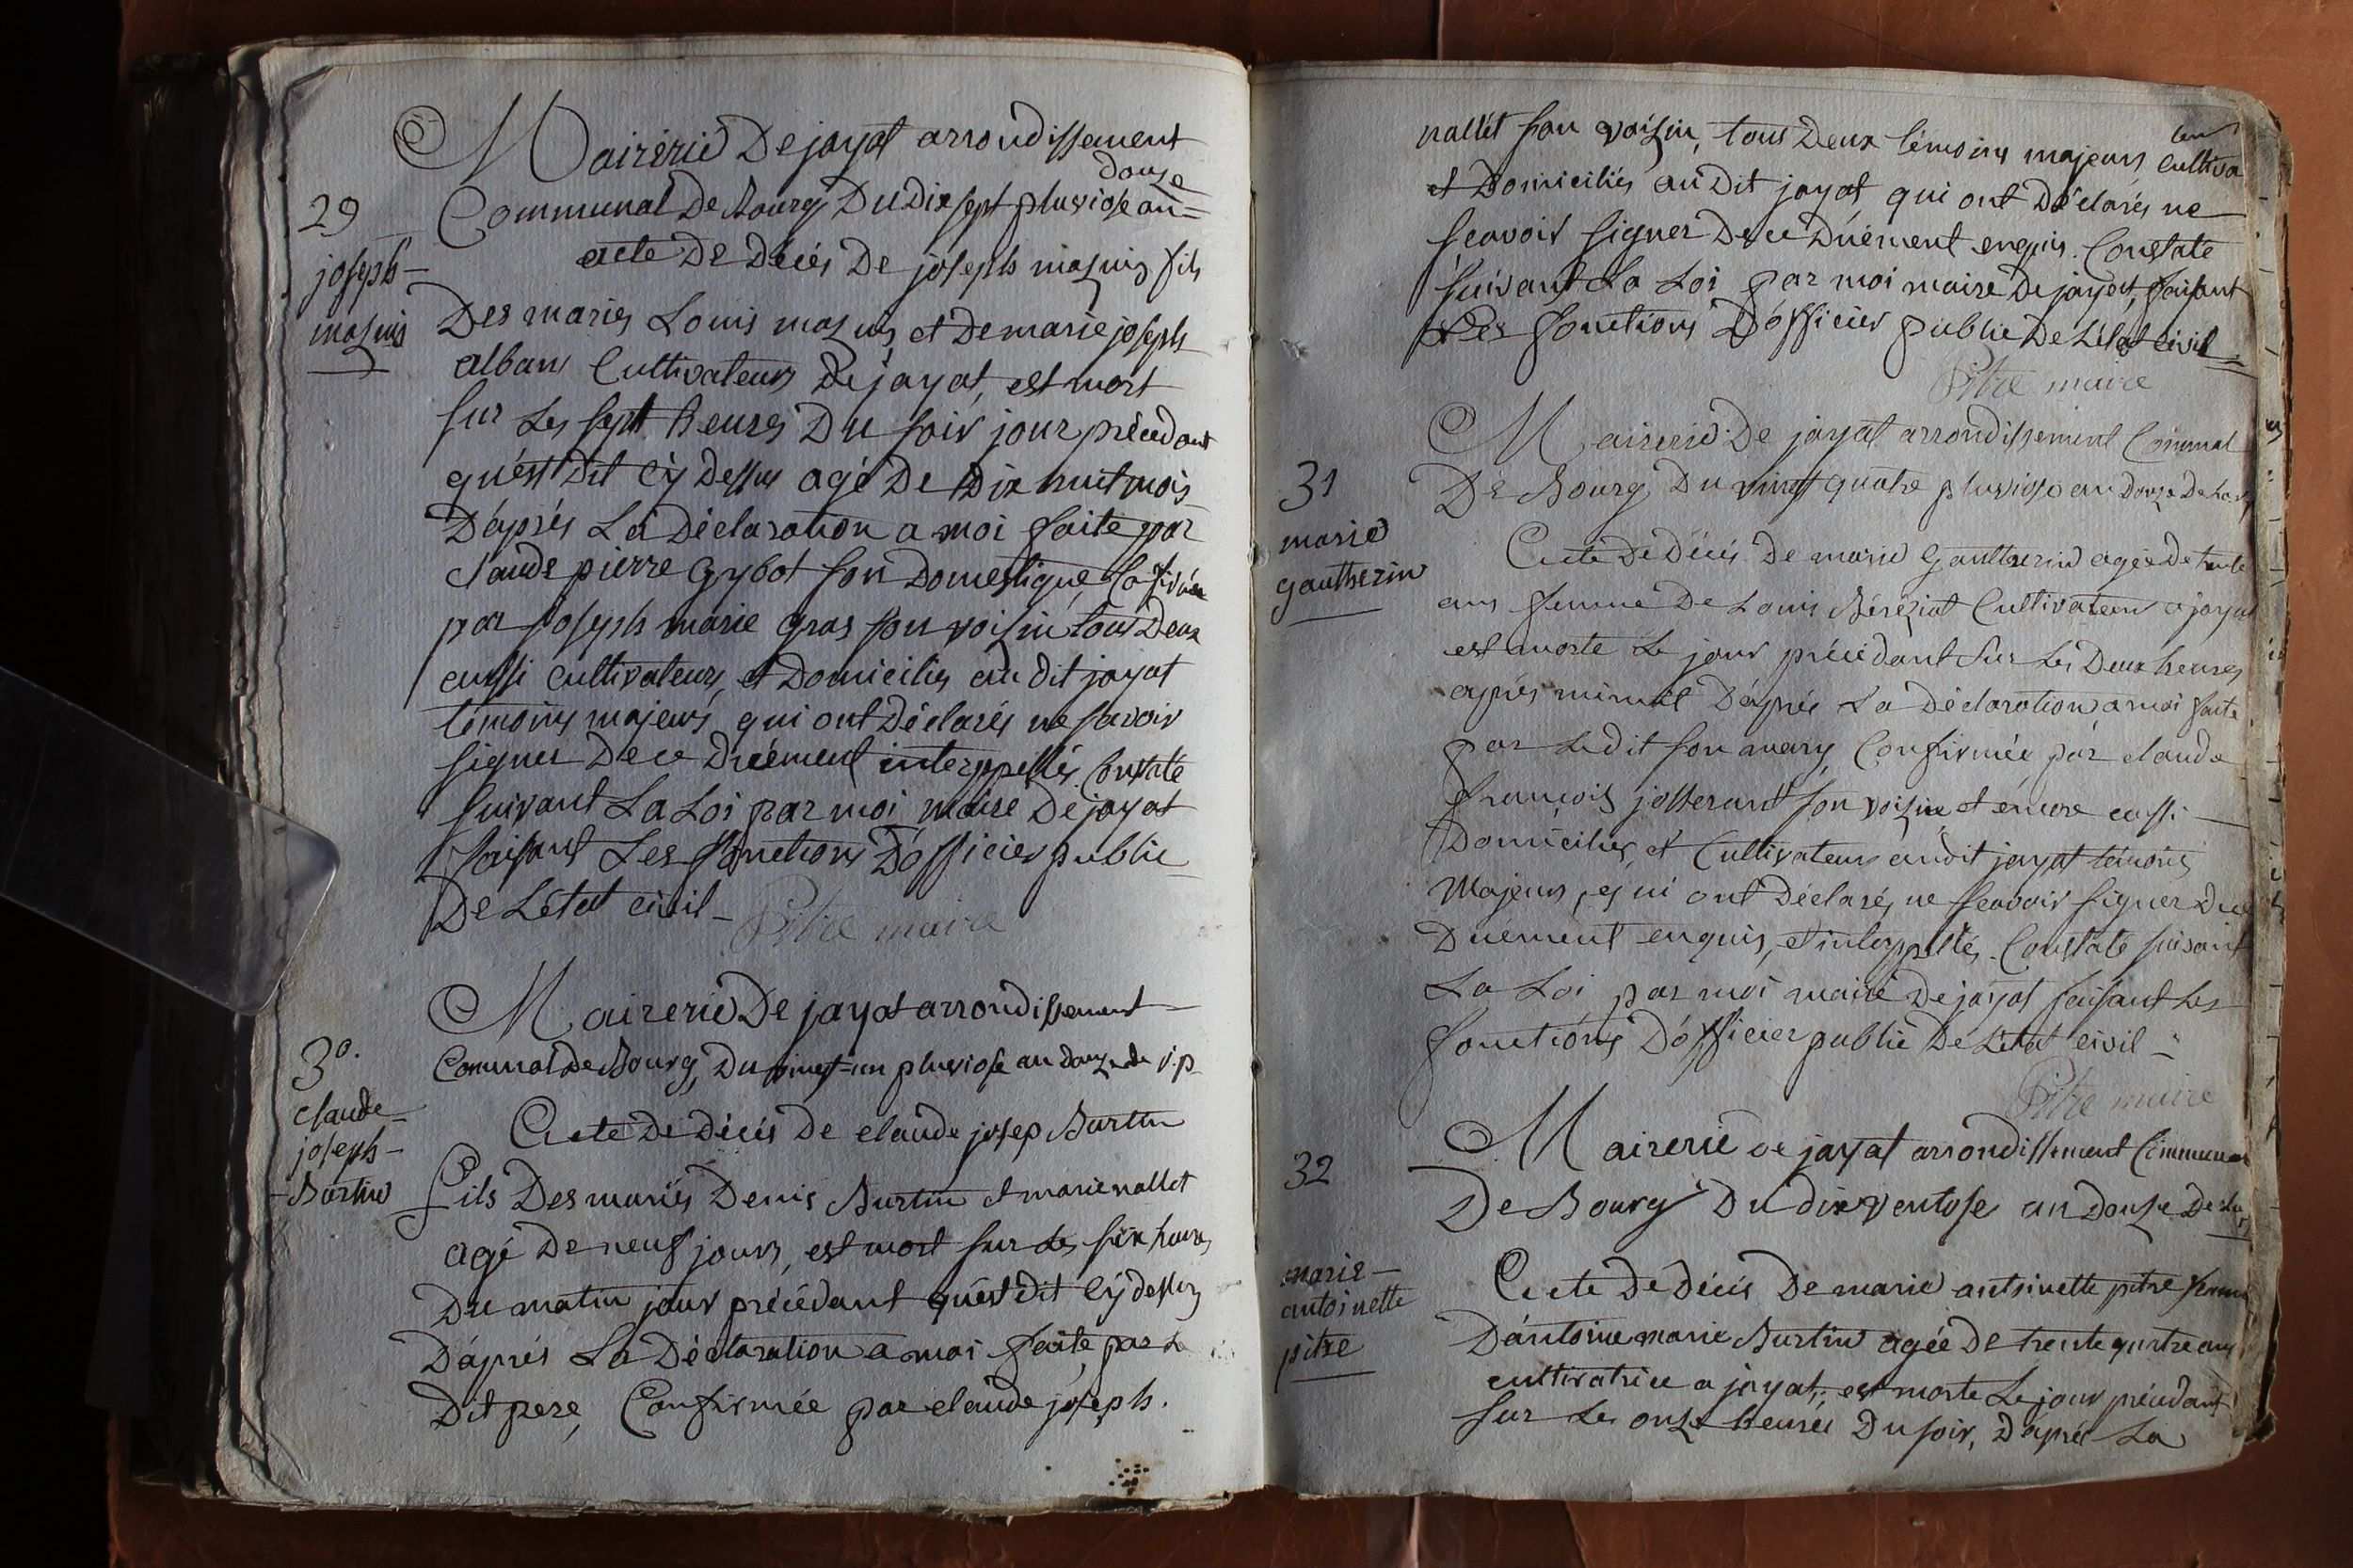 Mairerie De jayat arrondissement
Communal De Bourg Du Dix sept pluviose an douze
29
joseph
mazuis
acte De Décés De joseph mazuis fils
Des mariés Louis mazuis et De marie joseph
alban Cultivateurs De jayat, est mort
sur Les sept heures Du soir jour précedant
qu'est Dit Cÿ Dessus agé De Dix huit mois
D'aprés La Déclaration a moi faite par
Claude pierre Gybot son Domestique, Confirmée
par joseph marie gras son voisin tous Deux
aussi Cultivateurs, et Domiciliés au Dit jayat
témoins majeurs, qui ont Déclarés ne savoir
signer De ce Duëment interppellés. Constaté
suivant La Loi par moi maire De jayat
faisant Les fonctions D'officier public
De L'état civil
Pitre maire
Mairerie De jayat arrondissement
Commal De Bourg, Du vingt-un pluviose an douze de r.p.
30.
claude
joseph
Burtin
Acte De Décés De claude josep Burtin
fils Des mariés Denis Burtin et marie nallet
agé De neuf jours, est mort sur Les six heures
Du matin jour précédant qu'est Dit Cÿ dessus
D'aprés La Déclaration a moi faite par Le
Dit pere, Confirmée par claude joseph.
nallet son voisin, tous Deux témoins majeurs cultivateurs
et Domiciliés au Dit jayat qui ont Déclarés ne
sçavoir signer De ce Duëment enquis. Constaté
suivant La Loi par moi maire De jayat, faisant
Les fonctions D'officier public De L'état civil
Pitre maire
Mairerie De jayat arrondissement Commal
De Bourg Du vingt quatre pluviose an Douze De La r
31
marie
gautherin
Acte De Décés De marie Gautherin agée De trente
ans femme De Louis Béréziat Cultivateur a jayat
est morte Le jour précédant sur Les Deux heures
aprés minuit D'aprés La Déclaration a moi faite
par Le dit son mary Confirmée par claude
françois josserant son voizin et encore aussi
Domiciliés, et Cultivateurs audit jayat témoins
Majeurs, qui ont Déclarés ne sçavoir signer De ce
Duëment enquis, et interppellés. Constaté suivant
La Loi par moi maire De jayat faisant Les
fonctions D'officier public De L'état civil
Pitre maire
Mairerie de jayat arrondissement Communal
De Bourg Du dix ventose an Douze De La r
32
marie
antoinette
pitre
Acte De Décés De marie antoinette pitre femme
D'antoine marie Burtin agée De trente quatre ans
cultivatrice a jayat, est morte Le jour précedant
sur Les onze heures Du soir, D'aprés La